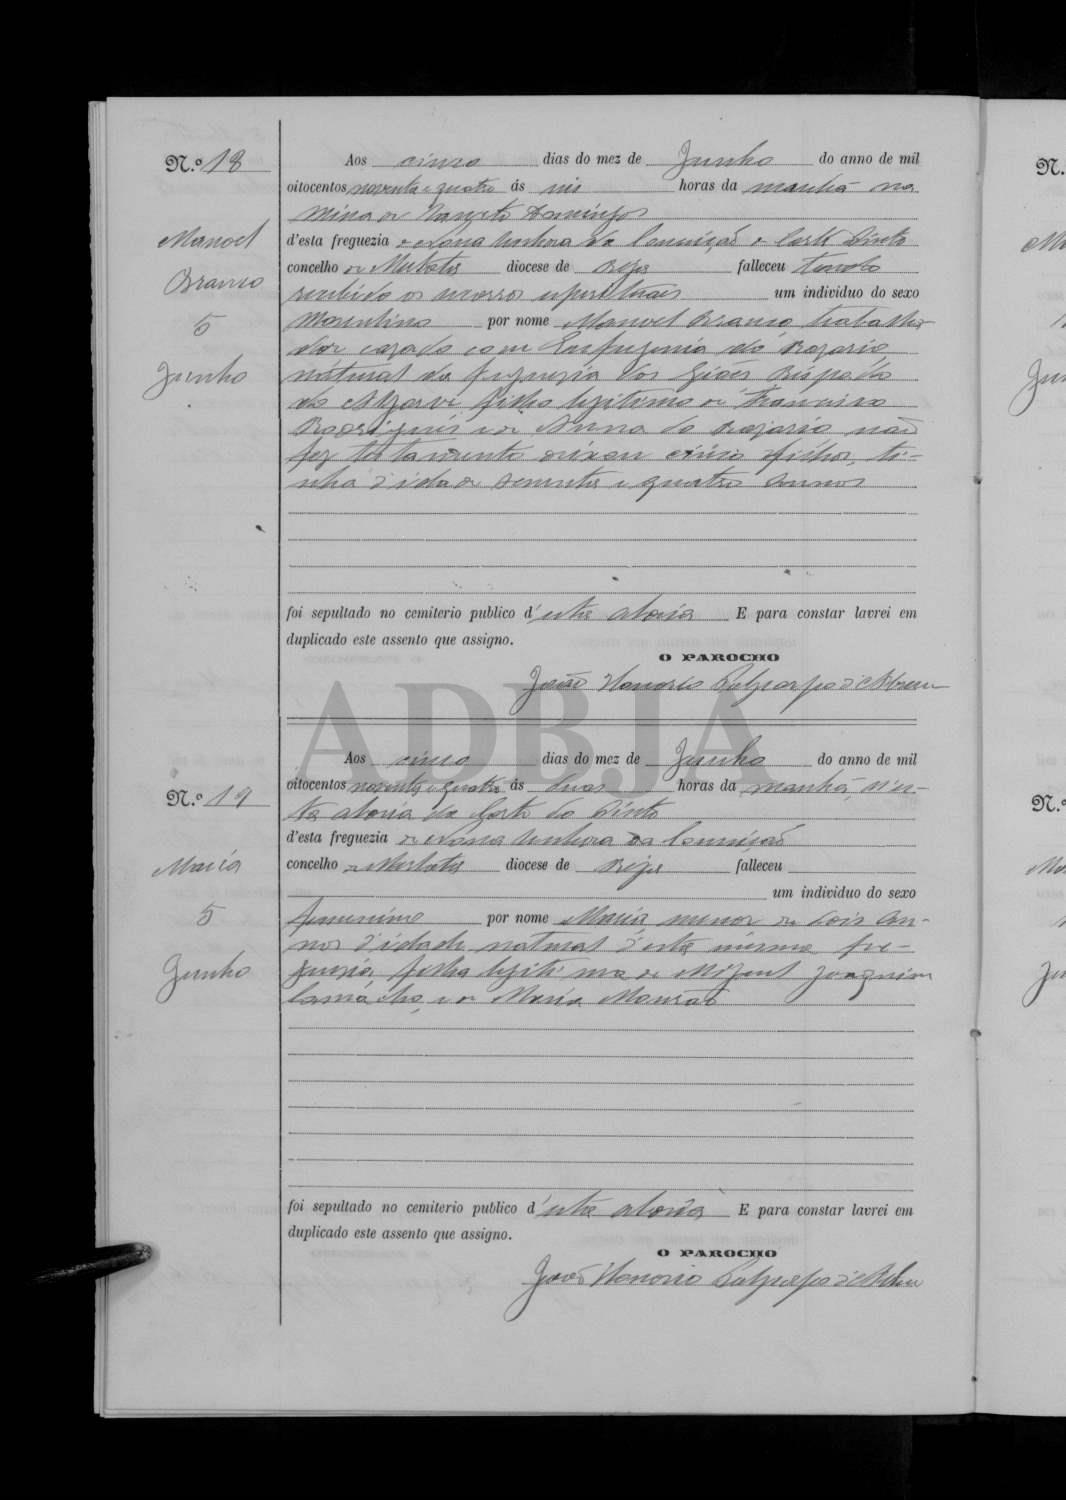 N.º 18
Manoel
Branco
5
Junho
Aos cinco dias do mez de Junho do anno de mil
oitocentos noventa e quatro ás seis horas da manhã na
Mina de São Domingos
d'esta freguezia de Nossa Senhora da Conceição e Corte Pinto
concelho de Mertola diocese de Beja falleceu tendo
recebido os socorros espirituais um individuo do sexo
Masculino por nome Manoel Branco trabalha-
dor cazado com do Rozario
natural da freguezia dos Giões Bispado
do Algarve filho legitimo de Francisco
Rodrigues e de Anna do Rozario não
fez testamento deixou cinco filhos, ti-
nha d'idade sessenta e quatro annos
foi sepultado no cemiterio publico d'esta aldeia E para constar lavrei em
duplicado este assento que assigno.
O PAROCHO
João Honorio d'Abreu
ADBJA
N.º 19
Maria
5
Junho
Aos cinco dias do mez de Junho do anno de mil
oitocentos noventa e quatro ás duas horas da manhã, n'es-
ta aldeia da Corte do Pinto
d'esta freguezia de Nossa Senhora da Conceição
concelho de Mertola diocese de Beja falleceu
um individuo do sexo
femenino por nome Maria menor de dois an-
nos d'idade natural d'esta mesma fre-
guezia, filha legitima de Miguel Joaquim
e de Maria
foi sepultado no cemiterio publico d'esta aldeia E para constar lavrei em
duplicado este assento que assigno.
O PAROCHO
João Honorio d'Abreu